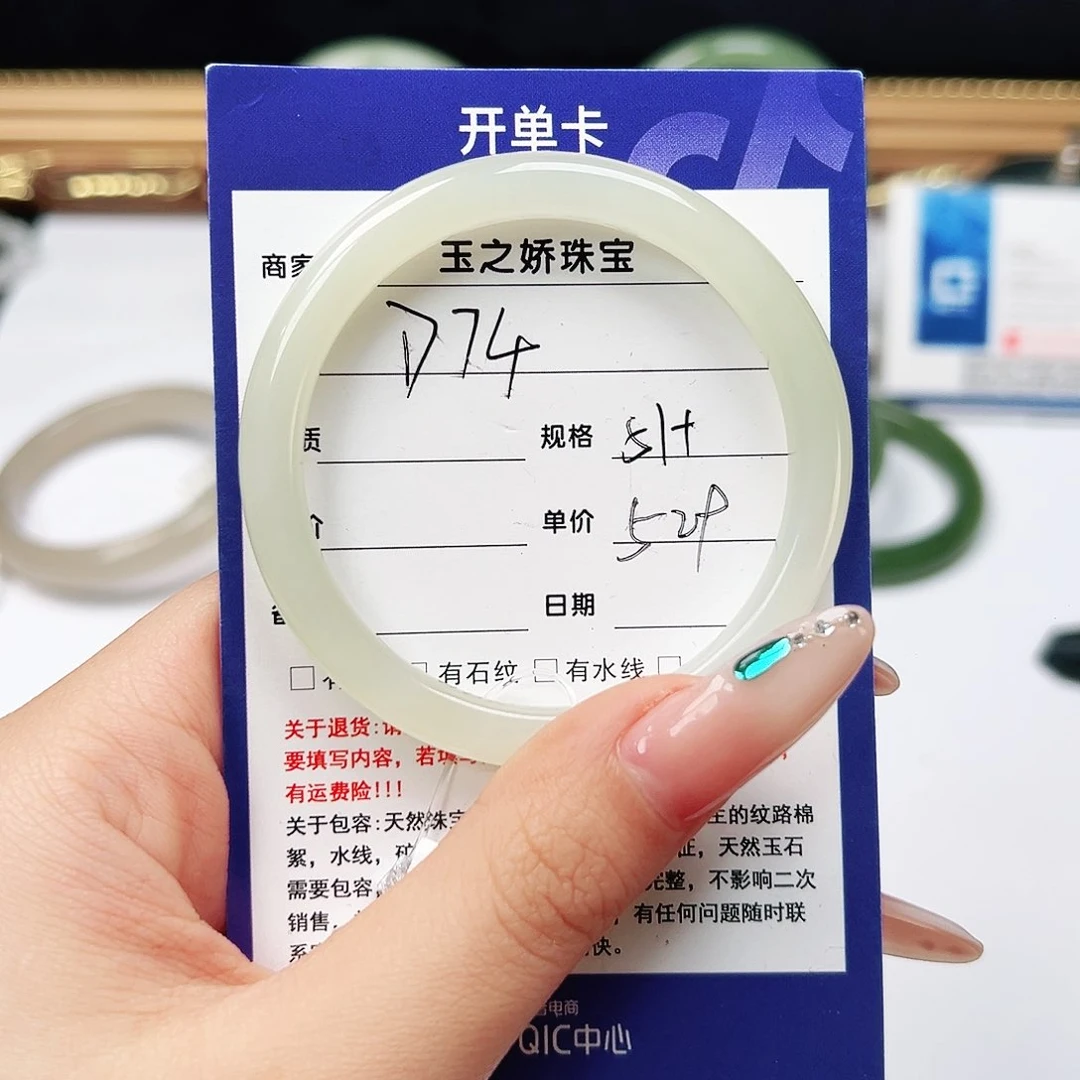 开单卡
商家 玉之娇珠宝
D74
质 规格 51+
价 单价
日期
有石纹 有水线
关于退货:请
要填写内容，若填写
有运费险!!!
关于包容:天然珠宝 生的纹路棉
絮，水线，矿 征，天然玉石
需要包容， 完整，不影响二次
销售. ，有任何问题随时联
系 快。
电商
QIC中心